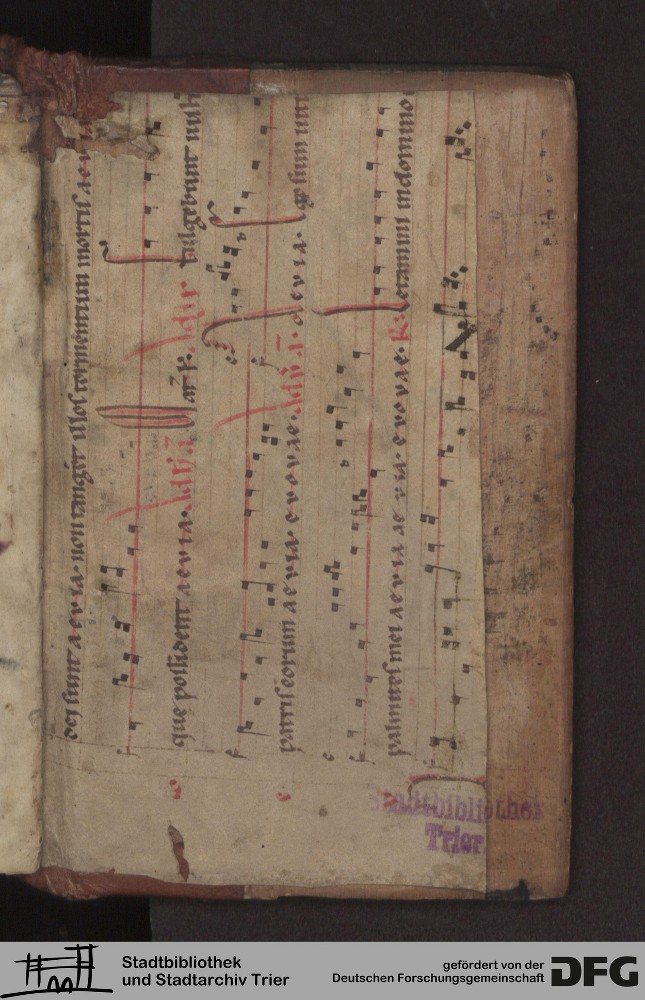 dei sunt aevia. non tanget illos tormentum mortis aevia
que possident aevia. Ad
fulgebunt iusti
patris eorum aevia. evovae. Ad
aevia. Ego sum uitis
palmites mei aevia ae via. evovae. R.
letamini in domino
Stadtbibliothek
Trier
Stadtbibliothek
und Stadtarchiv Trier
gefördert von der
Deutschen Forschungsgemeinschaft
DFG